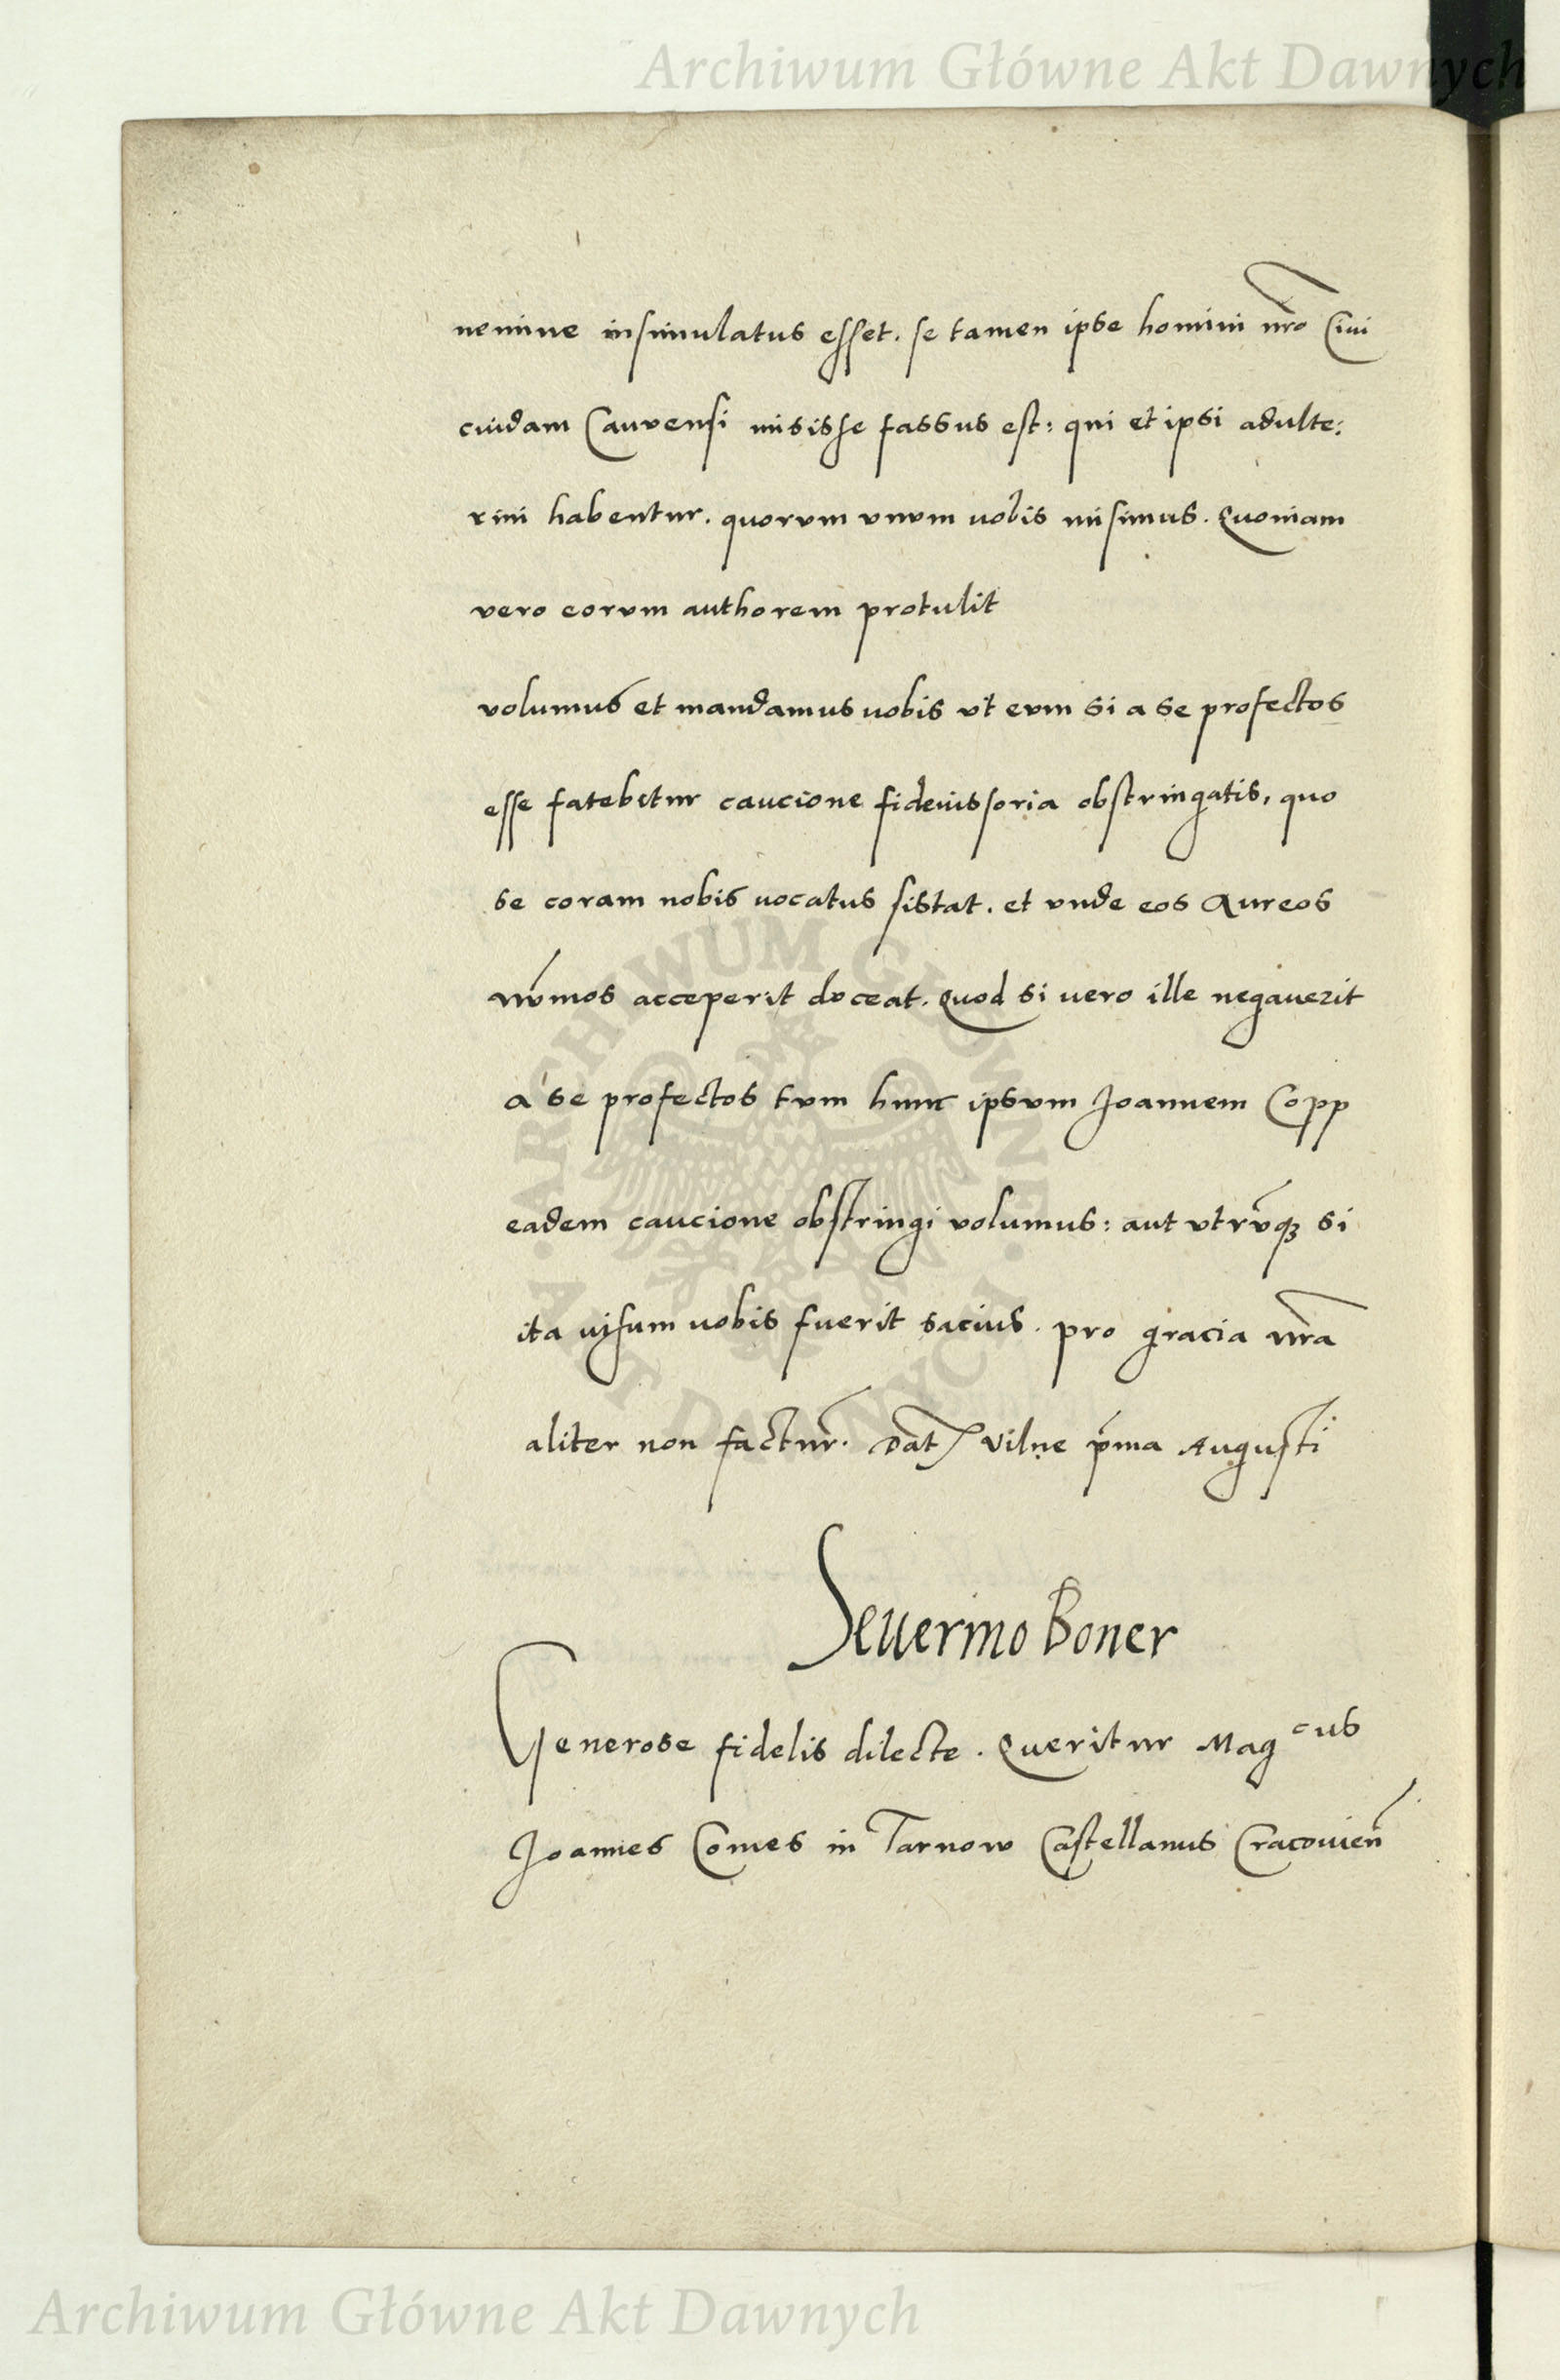 Archiwum Główne Akt Dawnych
nemine insimulatus esset. se tamen ipse homini nr̃o Ciui
cuidam Cauvensi misisse fassus est: qui et ipsi adulte:
rini habentur. quorvm vnvm uobis misimus. Quoniam
vero eorvm authorem protulit
volumus et mandamus uobis vt evm si a se profectos
esse fatebitur caucione fideiussoria obstringatis, quo
se coram nobis uocatus sistat. et vnde eos Aureos
nv̓mos acceperit doceat. Quod si uero ille negauerit
a se profectos tvm hunc ipsvm Joannem Copp
eadem caucione obstringi volumus: aut vtrv̓qꝫ si
ita uisum uobis fuerit sacius. pro gracia nr̃a
aliter non factur̃. Dat̃ Vilne p̃ma Augusti
Seuerino Boner
Generose fidelis dilecte. Queritur Mag cus
Joannes Comes in Tarnow Castellanus Cracouien̄
ARCHIWUM GŁÓWNE AKT DAWNYCH
Archiwum Główne Akt Dawnych